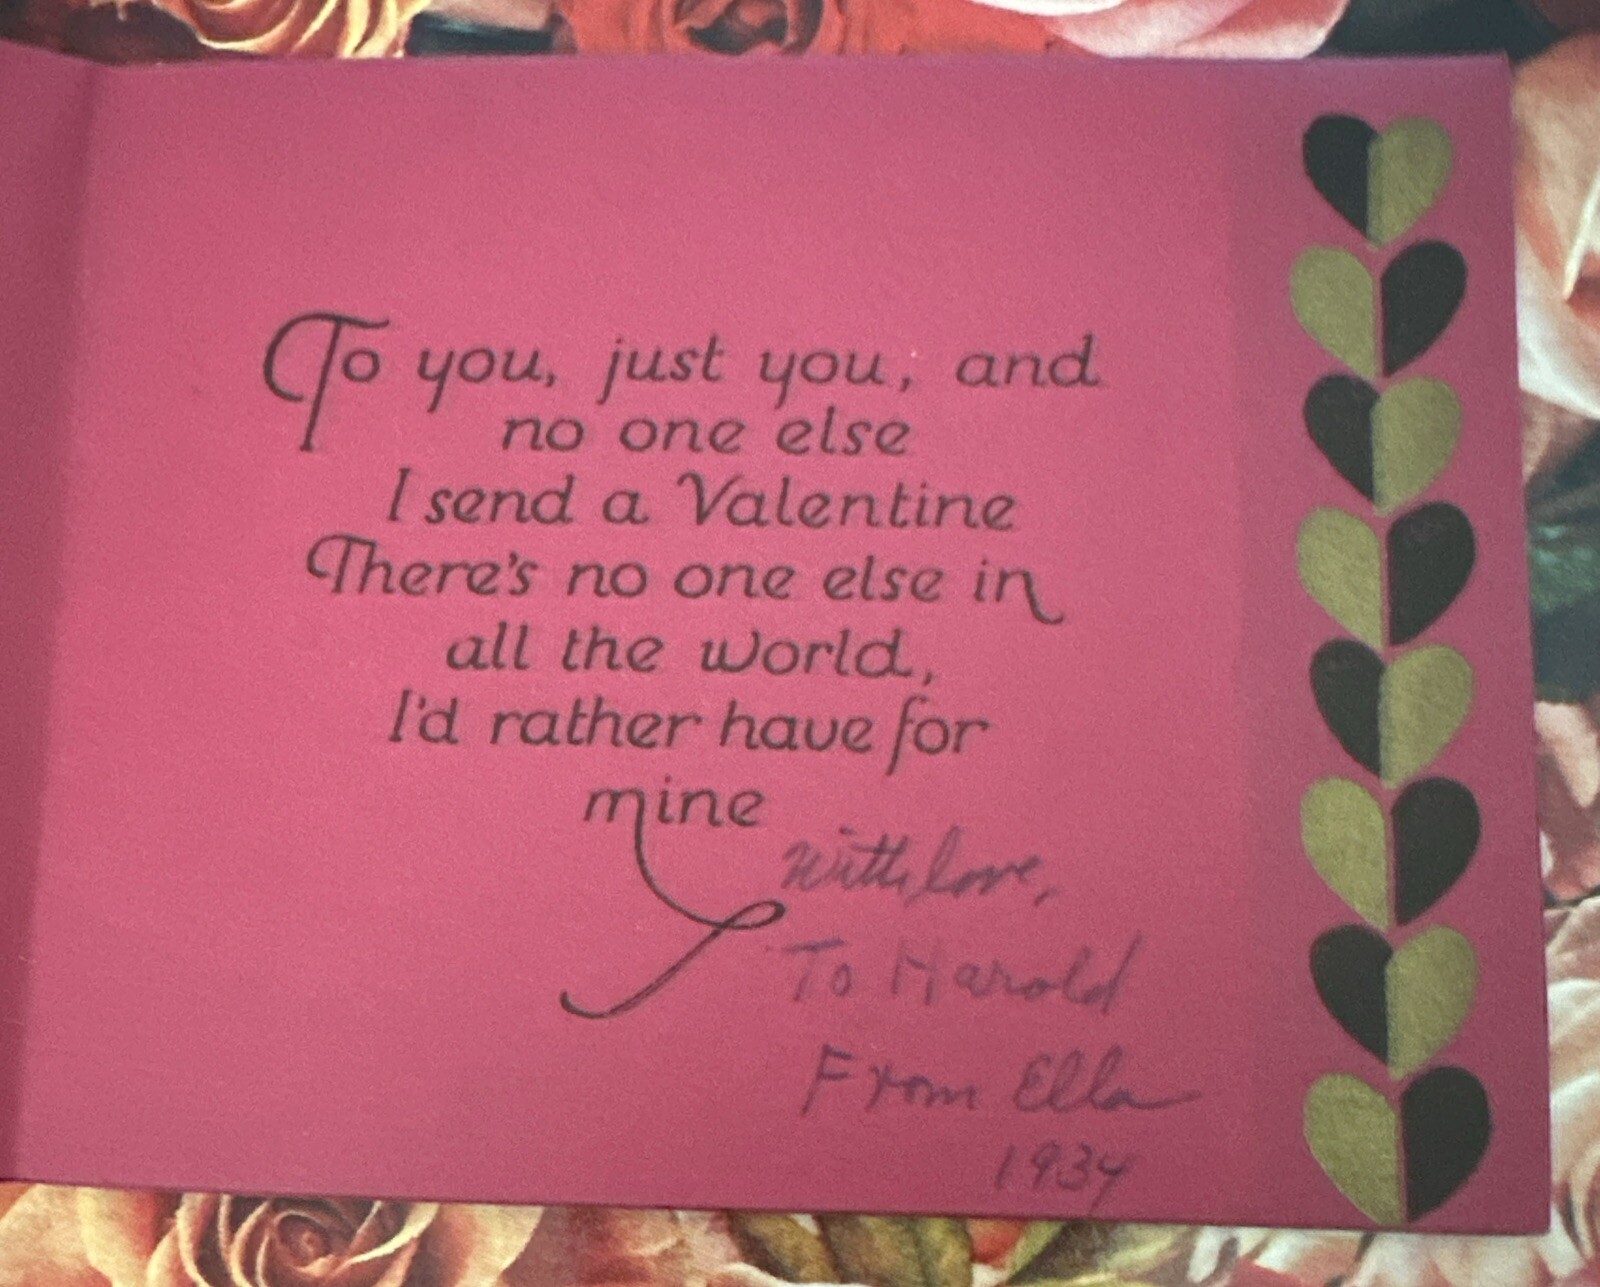 To you, just you, and
no one else
I send a Valentine
There's no one else in
all the world,
I'd rather have for
mine
With love,
To Harold
From Ella
1934